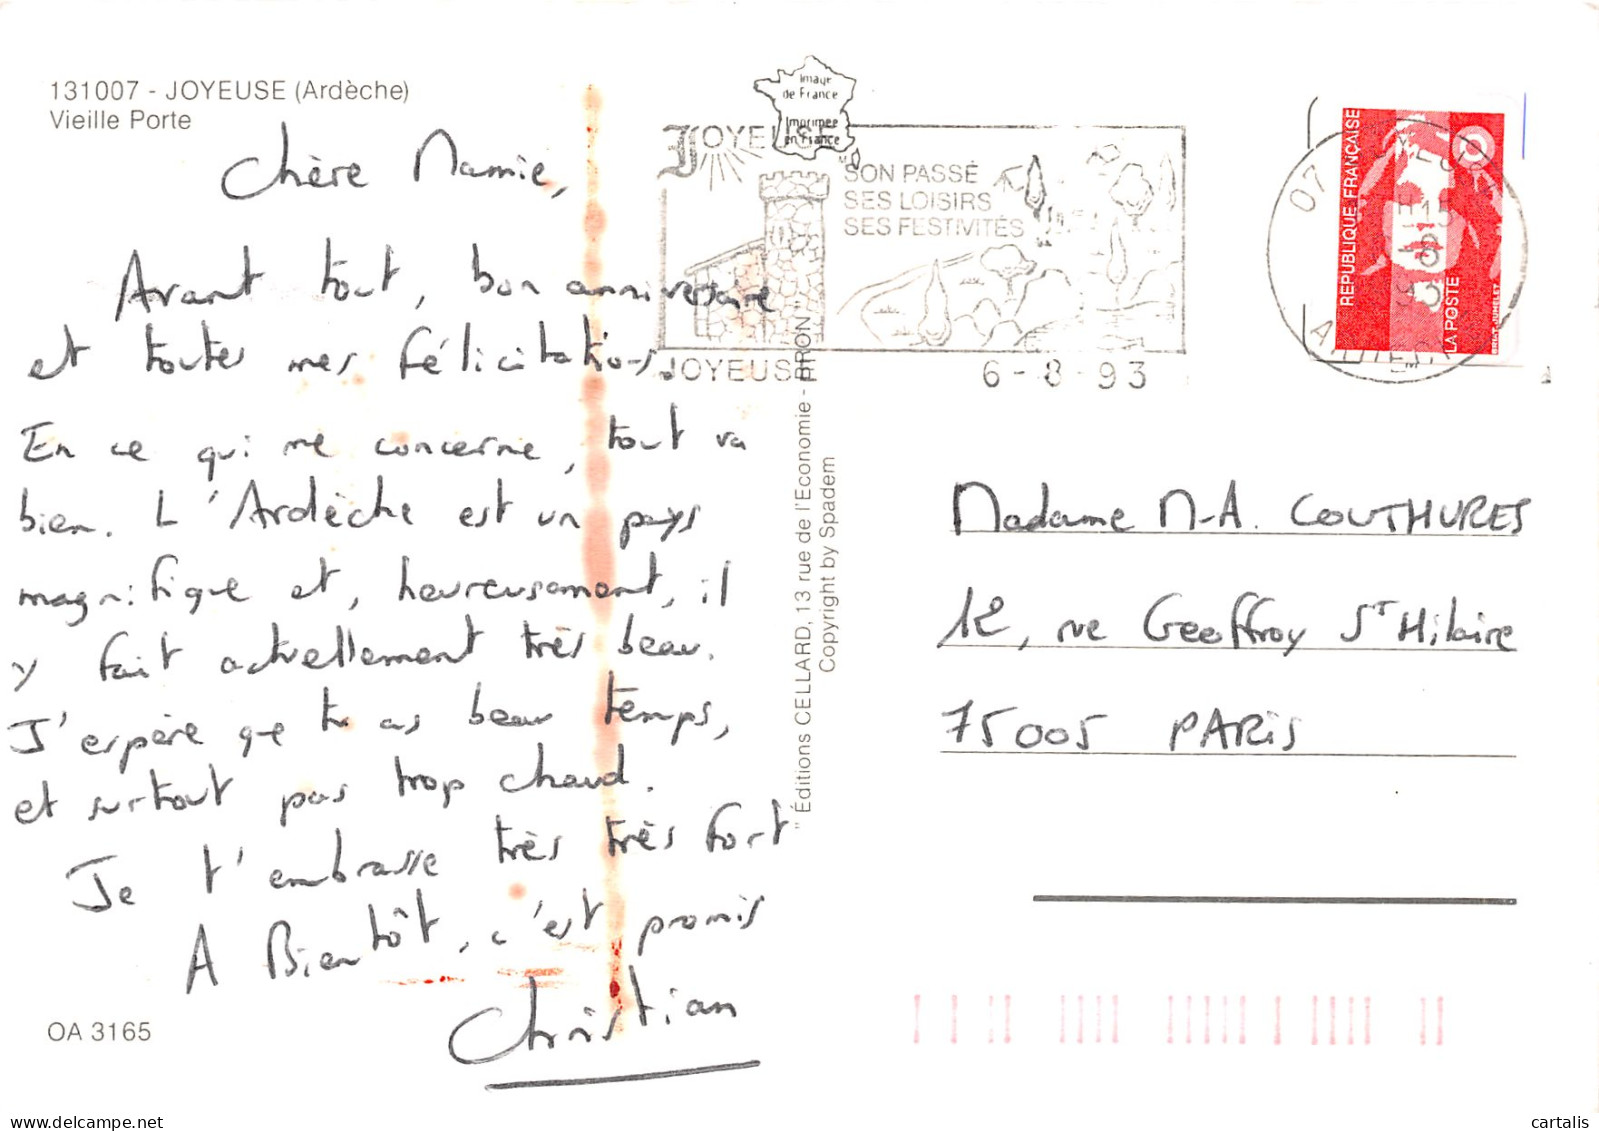 131007 - JOYEUSE (Ardèche)
Vieille Porte
Chère Mamie,
Avant tout, bon anniversaire
et toutes mes félicitations.
En ce qui me concerne, tout va
bien. L'Ardèche est un pays
magnifique et, heureusement, il
y fait actuellement très beau.
J'espère que tu as beau temps,
et surtout pas trop chaud.
Je t'embrasse très très fort
A Bientôt, c'est promis
Christian
OA 3165
Image
de France
Imprimée
en France
JOYEUSE
SON PASSÉ
SES LOISIRS
SES FESTIVITÉS
JOYEUSE
6-8-93
07
REPUBLIQUE FRANÇAISE
LA POSTE
"Éditions CELLARD, 13 rue de l'Economie - BRON"
Copyright by Spadem
Madame M-A. COUTHURES
12, rue Geoffroy St Hilaire
75005 PARIS
cartalis